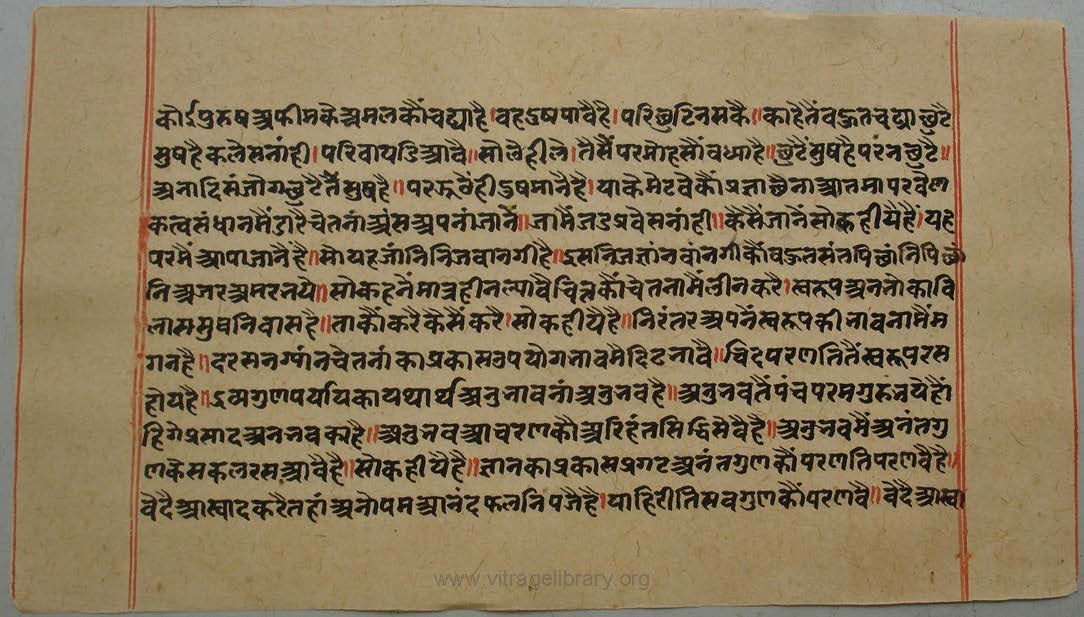 कोई पुरुष अफीमकेअमलकौं चढ्या है।वह दुष पावै है। परि छुटि न सकै॥काहेतैं बहुत चढ्या छुटै
सुष है कलेस नांही।परि वाय डि आवै॥सो लेही ले। तैसैं परमोहसौं बध्या है॥छुटैं सुष है परं न छुटै॥
अनादि संजोग छुटै तैं सुष है॥पर झूठैं ही दुष मानै है।याके मेटवेकौं प्रज्ञा छैना आतमा पर कै ए
कत्व संधानमैं डारै चेतनां अंस अपनां जानैं॥जामैं जड प्रवेस नांही।कैसैं जानैं सो कहीयै हैं। यह
परमैं आपा जानैं है॥सो यह जांनि निज वानगी है॥इस निज ज्ञांन वांनगीकौं बहुत संत पिछांनि पिछां
नि अजर अमर नये॥सो कहनैं मात्र ही न ल्यावै चित्तकौं चेतनामैं लीन करै।स्वरूप अनुनौ का वि
लास सुष निवास है॥ताकौं करै कैसैं करै।सो कहीयै है॥निरंतर अपनैं स्वरूपकी नावनामैं म
गन है॥दरसन ग्यांन चेतनां का प्रकास उपयोग नावमैं दिढ नावै॥चिद परणतितैं स्वरूप रस
होय है॥द्रव्य गुण पर्याय का यथार्थ अनुनावनां अनुनव है॥अनुनवतैं पंच परम गुरु नये हौं
हिगे प्रसाद अनुनव का है॥अनुनव आचरणकौ अरिहंत सिद्धि सेवै है॥अनुनवमैं अनंत गु
णके सकल रस आवै है॥सो कहीयै है॥ज्ञानका प्रकास प्रगट अनंत गुणकौं परणति परणवै है॥
वेदै आस्वाद करै तहां अनोपम आनंद फल निपजै है।याहि रीति सब गुणकौं परणवै॥वेदै आस्वा
www.vitragelibrary.org